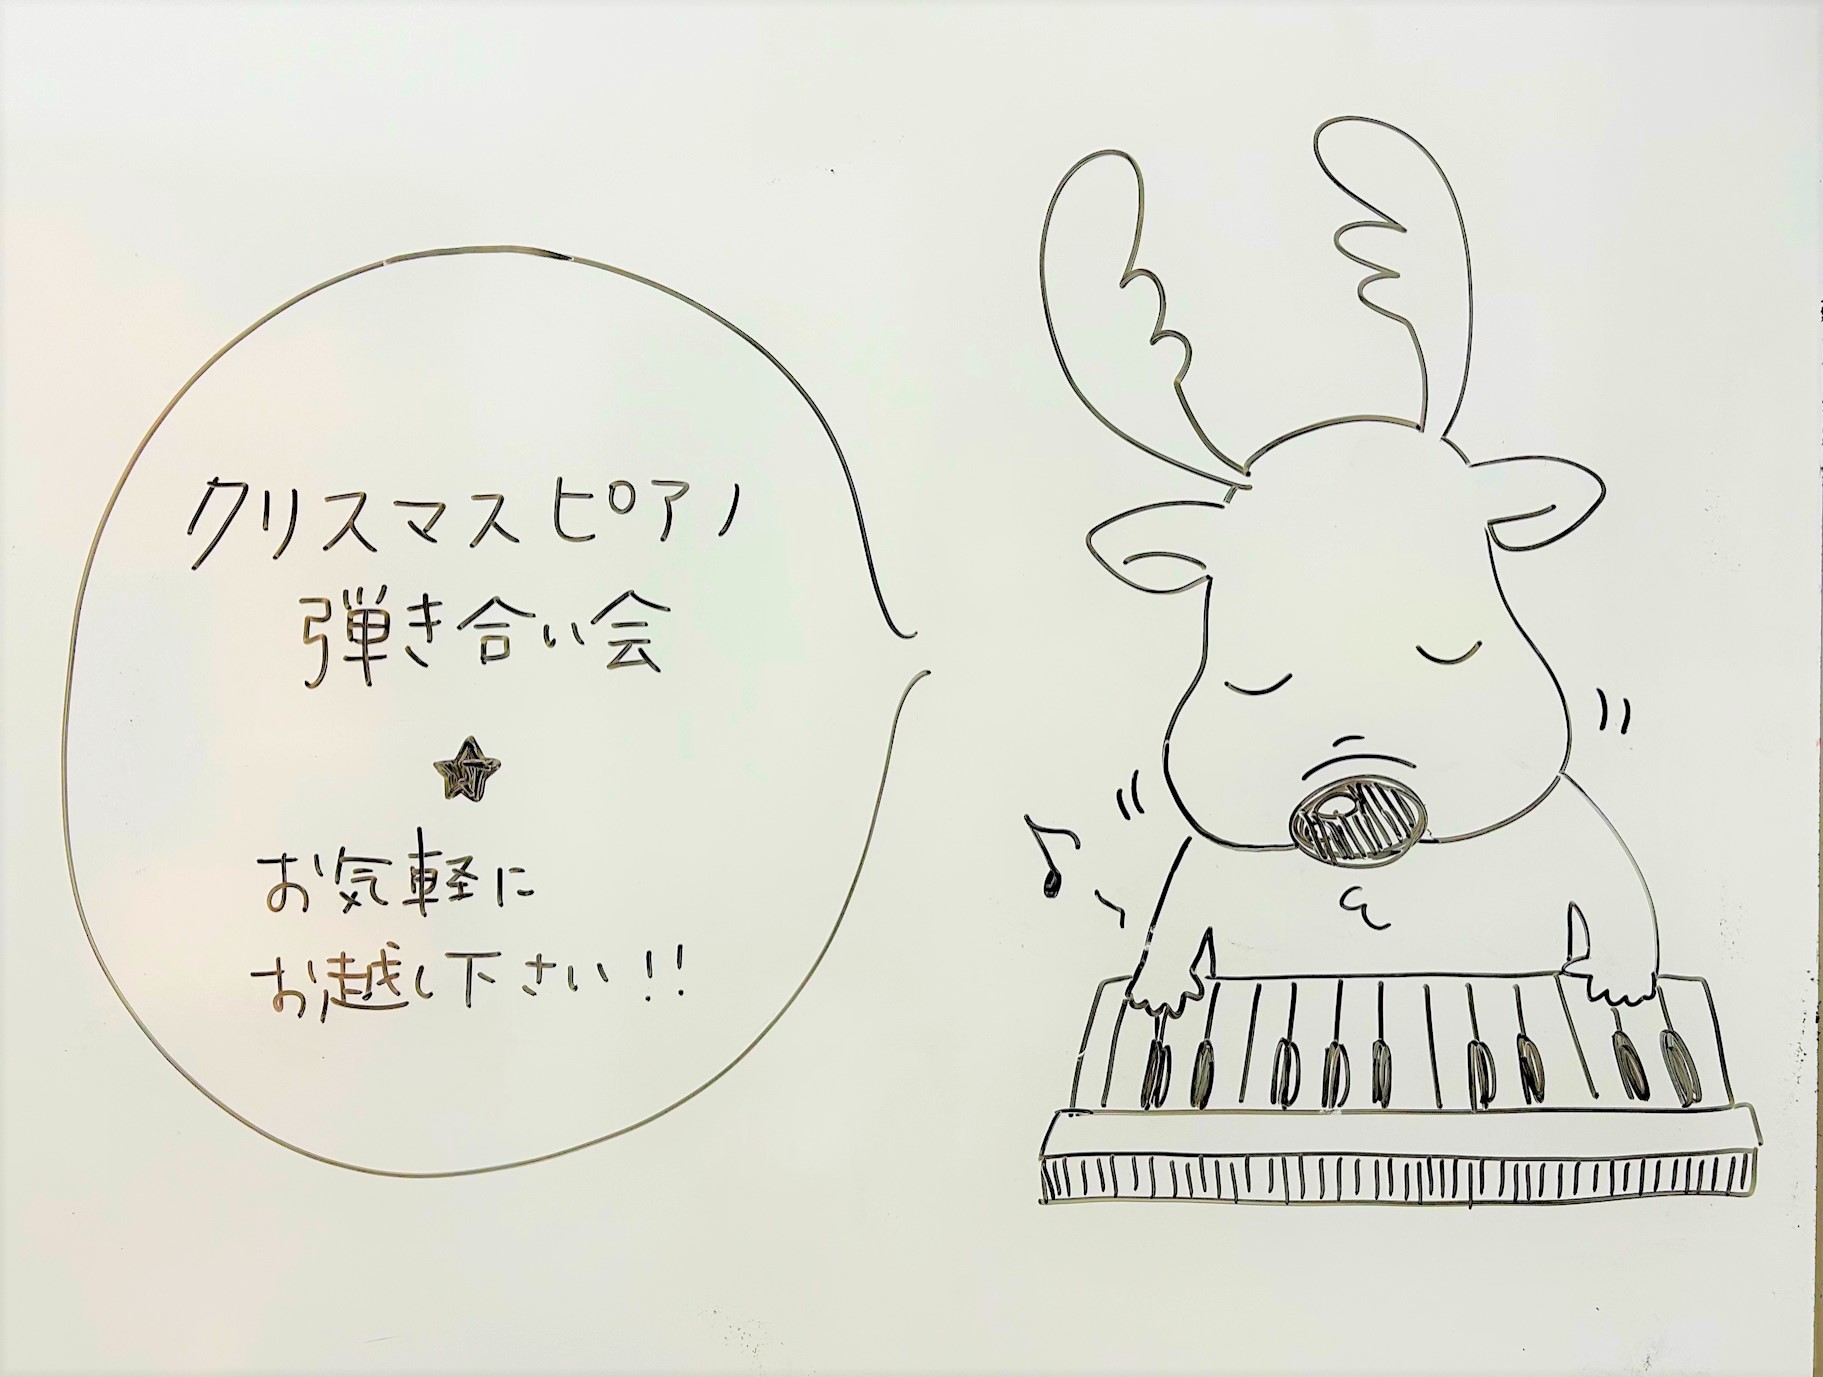 クリスマスピアノ
弾き合い会
★
お気軽に
お越し下さい!!